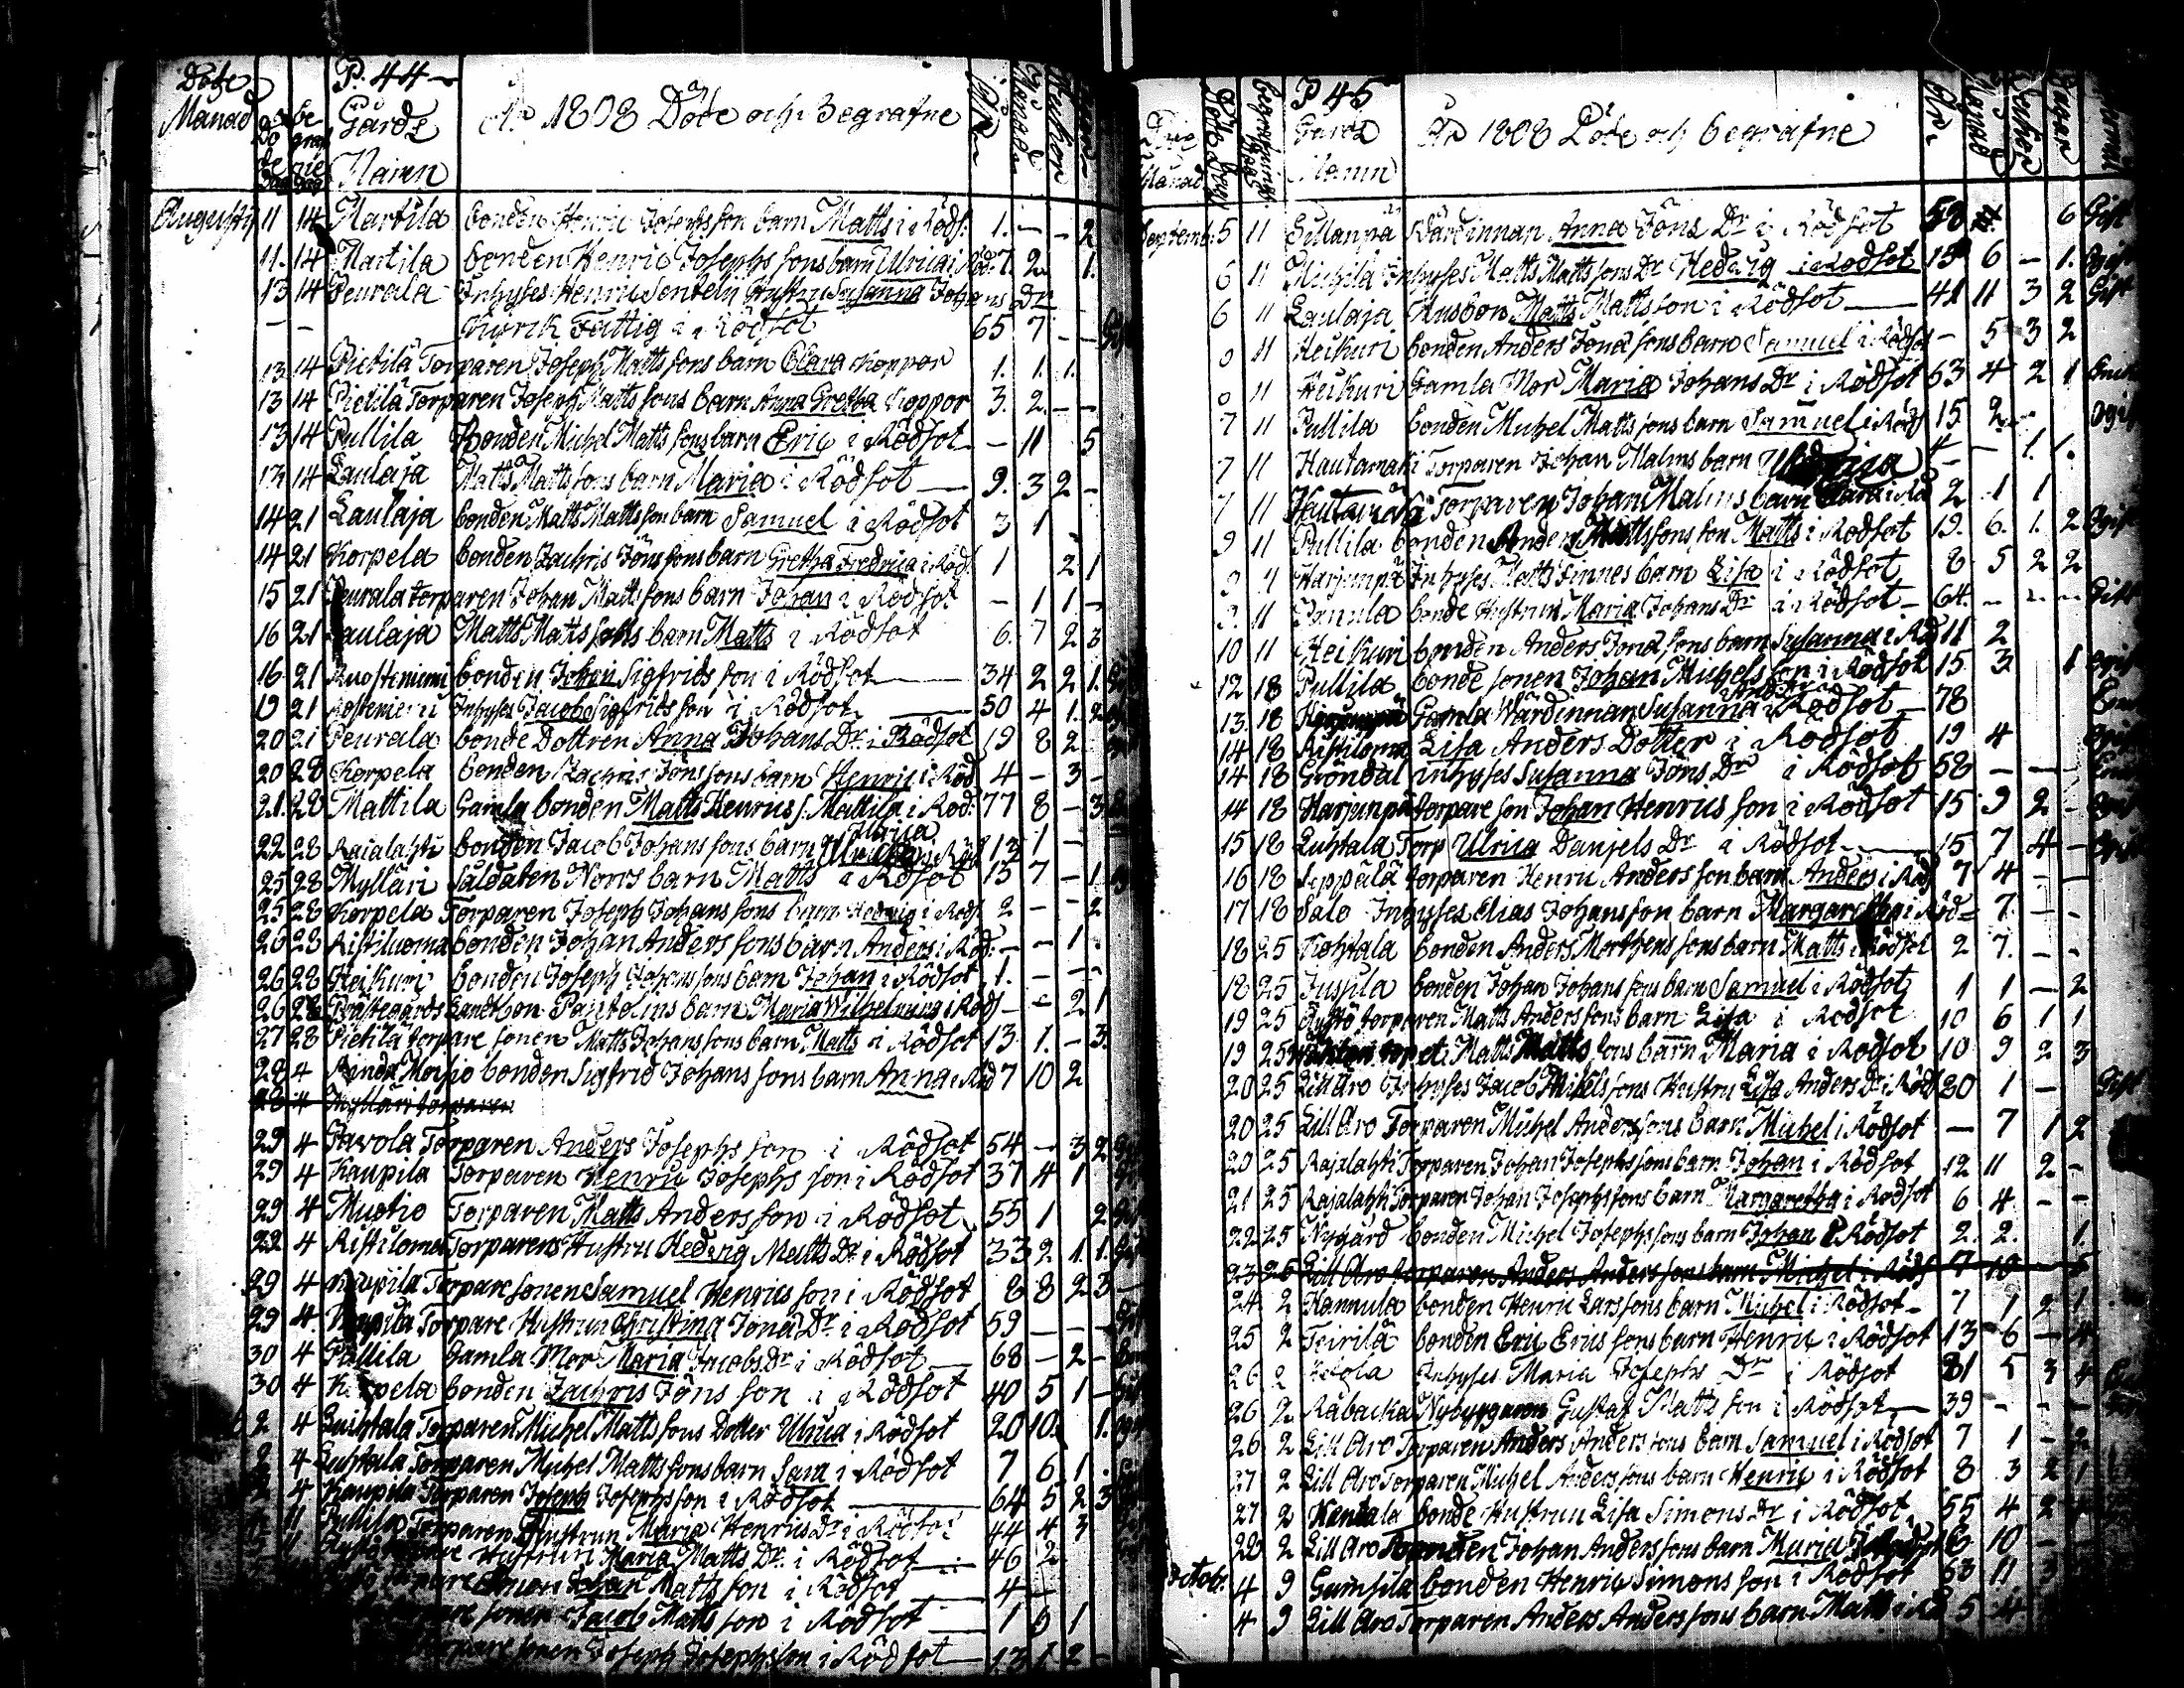 Döde
Månad
P. 44
Gårds
Namn
Ao 1808 Döde och Begrafne
Augusty 11 14 Martila bonden Henric Josephs son barn Matts i Röds: 1. — — 2
11. 14 Martila bonden Henric Josephs sons barn Ulrica i Röd: 7. 2 1.
13 14 Peurala Inhyses Henric Senteln Hustru Susanna Johans Dr
— — Fattig i Rödsot 65 7 — —
13 14 Pietilä Torparen Joseph Matts sons barn Clara Koppor 1. 1. 1.
13 14 Pietilä Torparen Joseph Matts sons barn Anna Gretha Koppor 3. 2. — —
13 14 Pullila Bonden Michel Matts sons barn Eric i Rödsot — 11 5
13 14 Laulaja Matts Matts sons barn Maria i Rödsot 9. 3 2 —
14 21 Laulaja bonden Matts Matts son barn Samuel i Rödsot 3 1
14 21 Korpela bonden Zachris Jöns sons barn Gretha Fredrica i Röds: 1 2 1
15 21 Peurala torparen Johan Matts sons barn Johan i Rödsot — 1 1 —
16 21 Laulaja Matts Matts sons barn Matts i Rödsot 6. 7 2 3
16 21 bonden Johan Sigfrids son i Rödsot 34 2 2 1.
19 21 Inhyses Jacob Sigfrids son i Rödsot 50 4 1. 2
20 21 Peurala bonde Dottren Anna Johans Dr i Rödsot 19 8 2
20 28 Korpela bonden Zachris Jöns sons barn Henric i Röd 4 — 3 —
21. 28 Mattila Gamla bonden Matts Henrics s. Mattila i Röd: 77 8 — 3
22 28 Raialahti bonden Jacob Johans sons barn Ulrica i Röds 13 1 —
25 28 Mylläri Saldaten Norrs barn Matts i Rödsot 15 7 — 1
25 28 Korpela Torparen Joseph Johans sons barn Hedvig i Röds 2 — — 2
26 28 Ristiluoma bonden Johan Anders sons barn Anders i Röd: — — 1
26 28 Heikuri bonden Joseph Johans sons barn Johan i Rödsot 1. — —
26 28 Prästegårds Landtbon Pantolins barn Maria Wilhelmina i Röds — — 2 1
27 28 Pietilä torpare sonen Matts Johans sons barn Matts i Rödsot 13 1. — 3.
28 4 bonden Sigfrid Johans sons barn Anna i Röd 7 10 2
28 4 Mylläri torparen
29 4 Javola Torparen Anders Josephs son i Rödsot 54 — 3 2
29 4 Kaupila Torparen Henric Josephs son i Rödsot 37 4 1
29 4 Mustio Torparen Matts Anders son i Rödsot 55 1 2
29 4 Ristiloma Torparens Hustru Hedvig Matts Dr i Rödsot 33 2 1. 1.
29 4 Kaupila Torpare sonen Samuel Henrics son i Rödsot 8 8 2 3 —
29 4. Kaupila Torpare Hustrun Christina Jonæ Dr i Rödsot 59 — — —
30 4 Pullila Gamla Mor Maria Jacobs Dr i Rödsot 68 — 2 —
30 4 Korpela bonden Zachris Jöns son i Rödsot 40 5 1 —
2 4 Luhtala Torparen Michel Matts sons Dotter Ulrica i Rödsot 20 10. 1.
2 4 Luhtala Torparen Michel Matts sons barn Sara i Rödsot 7 6 1
2 4 Kaupila Torparen Joseph Josephs son i Rödsot 64 5 2 3
11 Pullila Torparen Hustrun Maria Henrics Dr i Rödsot 44 4 3
11 Hustrun Maria Matts Dr i Rödsot 46 2
Johan Matts son i Rödsot 4 —
sonen Jacob Matts son i Rödsot 1 6 1
Torpare sonen Joseph Josephsson i Rödsot 13 1 2 —
Månad
P 45
Gårds
Namn
År 1808 Döde och begrafne
Septemb: 5 11 Sillanpä Wärdinnan Anna Jöns Dr i Rödsot 58 6 Gift
6 11 Michila Inhyses Matts Matts sons Dr Hedvig i Rödsot 15 6 — 1. Ogift
6 11 Laulaja Husbon Matts Mattsson i Rödsot 41 11 3 2 Gift
11 Heikuri bonden Anders Jonæ sons barn Samuel i Rödsot — 5 3 2
11 Heikuri Gamla Mor Maria Johans Dr i Rödsot 63 4 2 1
7 11 Pullila bonden Michel Matts sons barn Samuel i Röds 15 2
7 11 Hautamäki Torparen Johan Malms barn 4 — 1. 1.
7 11 Torparen Johan Malms barn 2 1 1
9 11 Pullila bonden Anders Mattssons son Matts i Rödsot 19. 6. 1. 2
9 11 Harjunpä Inhyses Matts Sinnes barn Lisa i Rödsot 8 5 2 2
9. 11 bonde Hustrun Maria Johans Dr i Rödsot 64. — — — Gift
10 11 Heikuri bonden Anders Jonæ sons barn Susanna i Röd 11 2
12 18 Pullila bonde sonen Johan Michels son i Rödsot 15 3 1
13. 18 Gamla Wärdinnan Susanna i Rödsot 78
14 18 Ristiloma Lisa Anders Dotter i Rödsot 19 4
14 18 Gröndal inhyses Susanna Jöns Dr i Rödsot 58 — —
14 18 Harjunpä torpare son Johan Henrics son i Rödsot 15 9 2 —
15 18 Luhtala Torp Ulrica Danjels Dr i Rödsot 15 7 4 —
16 18 Seppälä torparen Henric Anders son barn Anders i Röd 7 4 — —
17 18 Salo Inhyses Elias Johansson barn Margaretha i Röd — 7 — —
18 25 Kohtala bonden Anders Morthens sons barn Matts i Rödsot 2 7. — —
18 25 Jussila bonden Johan Johans sons barn Samuel i Rödsot 1 1 — 2
19 25 torparen Matts Anders sons barn Lisa i Rödsot 10 6 1 1
19 25 Matts Matts sons barn Maria i Rödsot 10 9 2 3
20 25 Lill Aro Inhyses Jacob Mihels sons Hustru Lisa Anders Dr i Röds 20 1 — Gift
20 25 Lill Aro Torparen Michel Anders sons barn Michel i Rödsot — 7 1 2
20 25 Rajalahti Torparen Johan Josephs sons barn Johan i Rödsot 12 11 2 —
21 25 Rajalahti Torparen Johan Josephs sons barn Margaretha i Rödsot 6 4 — —
22 25 Nygård bonden Michel Josephs sons barn Johan i Rödsot 2. 2. 1.
23 25 Lill Aro torparen Anders Anders sons barn Michel i Röds 7 10 — 5
24 2 Hannula bonden Henric Lars sons barn Michel i Rödsot 7 1 2 1
25 2 Teirilä bonden Eric Erics sons barn Henric i Rödsot 13 6 — 4
26 2 Inhyses Maria Josephs Dr i Rödsot 81 5 3 4
26 2 Råbacka Nybyggaren Gustaf Matts son i Rödsot 39 — — —
26 2 Lill Aro Torparen Anders Anders sons barn Samuel i Rödsot 7 1 — 2
27 2 Lill Aro Torparen Michel Anders sons barn Henric i Rödsot 8 3 2 1
27 2 Kentala bonde Hustrun Lisa Simons Dr i Rödsot 55 4 2
28 2 Lill Aro Bonden Johan Anders sons barn Maria 6 10 —
Octobr. 4 9 bonden Henric Simons son i Rödsot 53 11 3
4 9 Lill Aro Torparen Anders Anders sons barn Matts i Rö 5 4